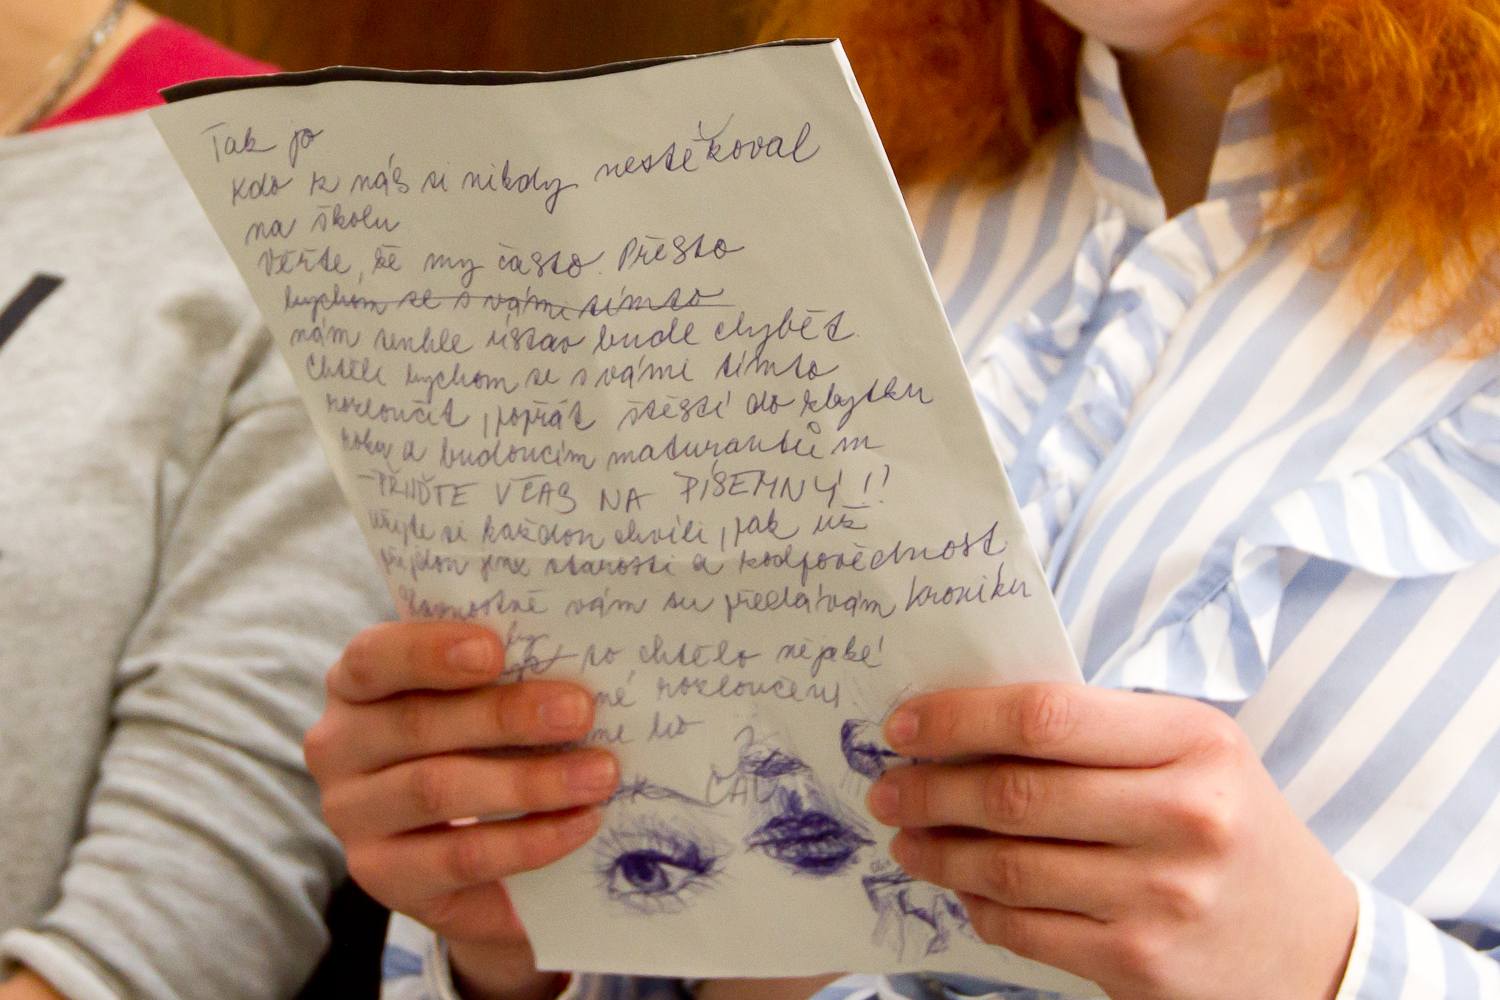 Tak jo
Kdo z nás si nikdy nestěžoval
na školu
Věřte, že my často. Přesto
bychom se s vámi tímto
nám tenhle ústav bude chybět.
Chtěli bychom se s vámi tímto
rozloučit, popřát štěstí do zbytku
roku a budoucím maturantům
- PŘIJĎTE VČAS NA PÍSEMNÝ!!
užijte si každou chvíli, pak už
přijdou jen starosti a zodpovědnost
Slavnostně vám su předávám kroniku
by
to chtělo nějaké
né rozloučení.
me to
ČAU